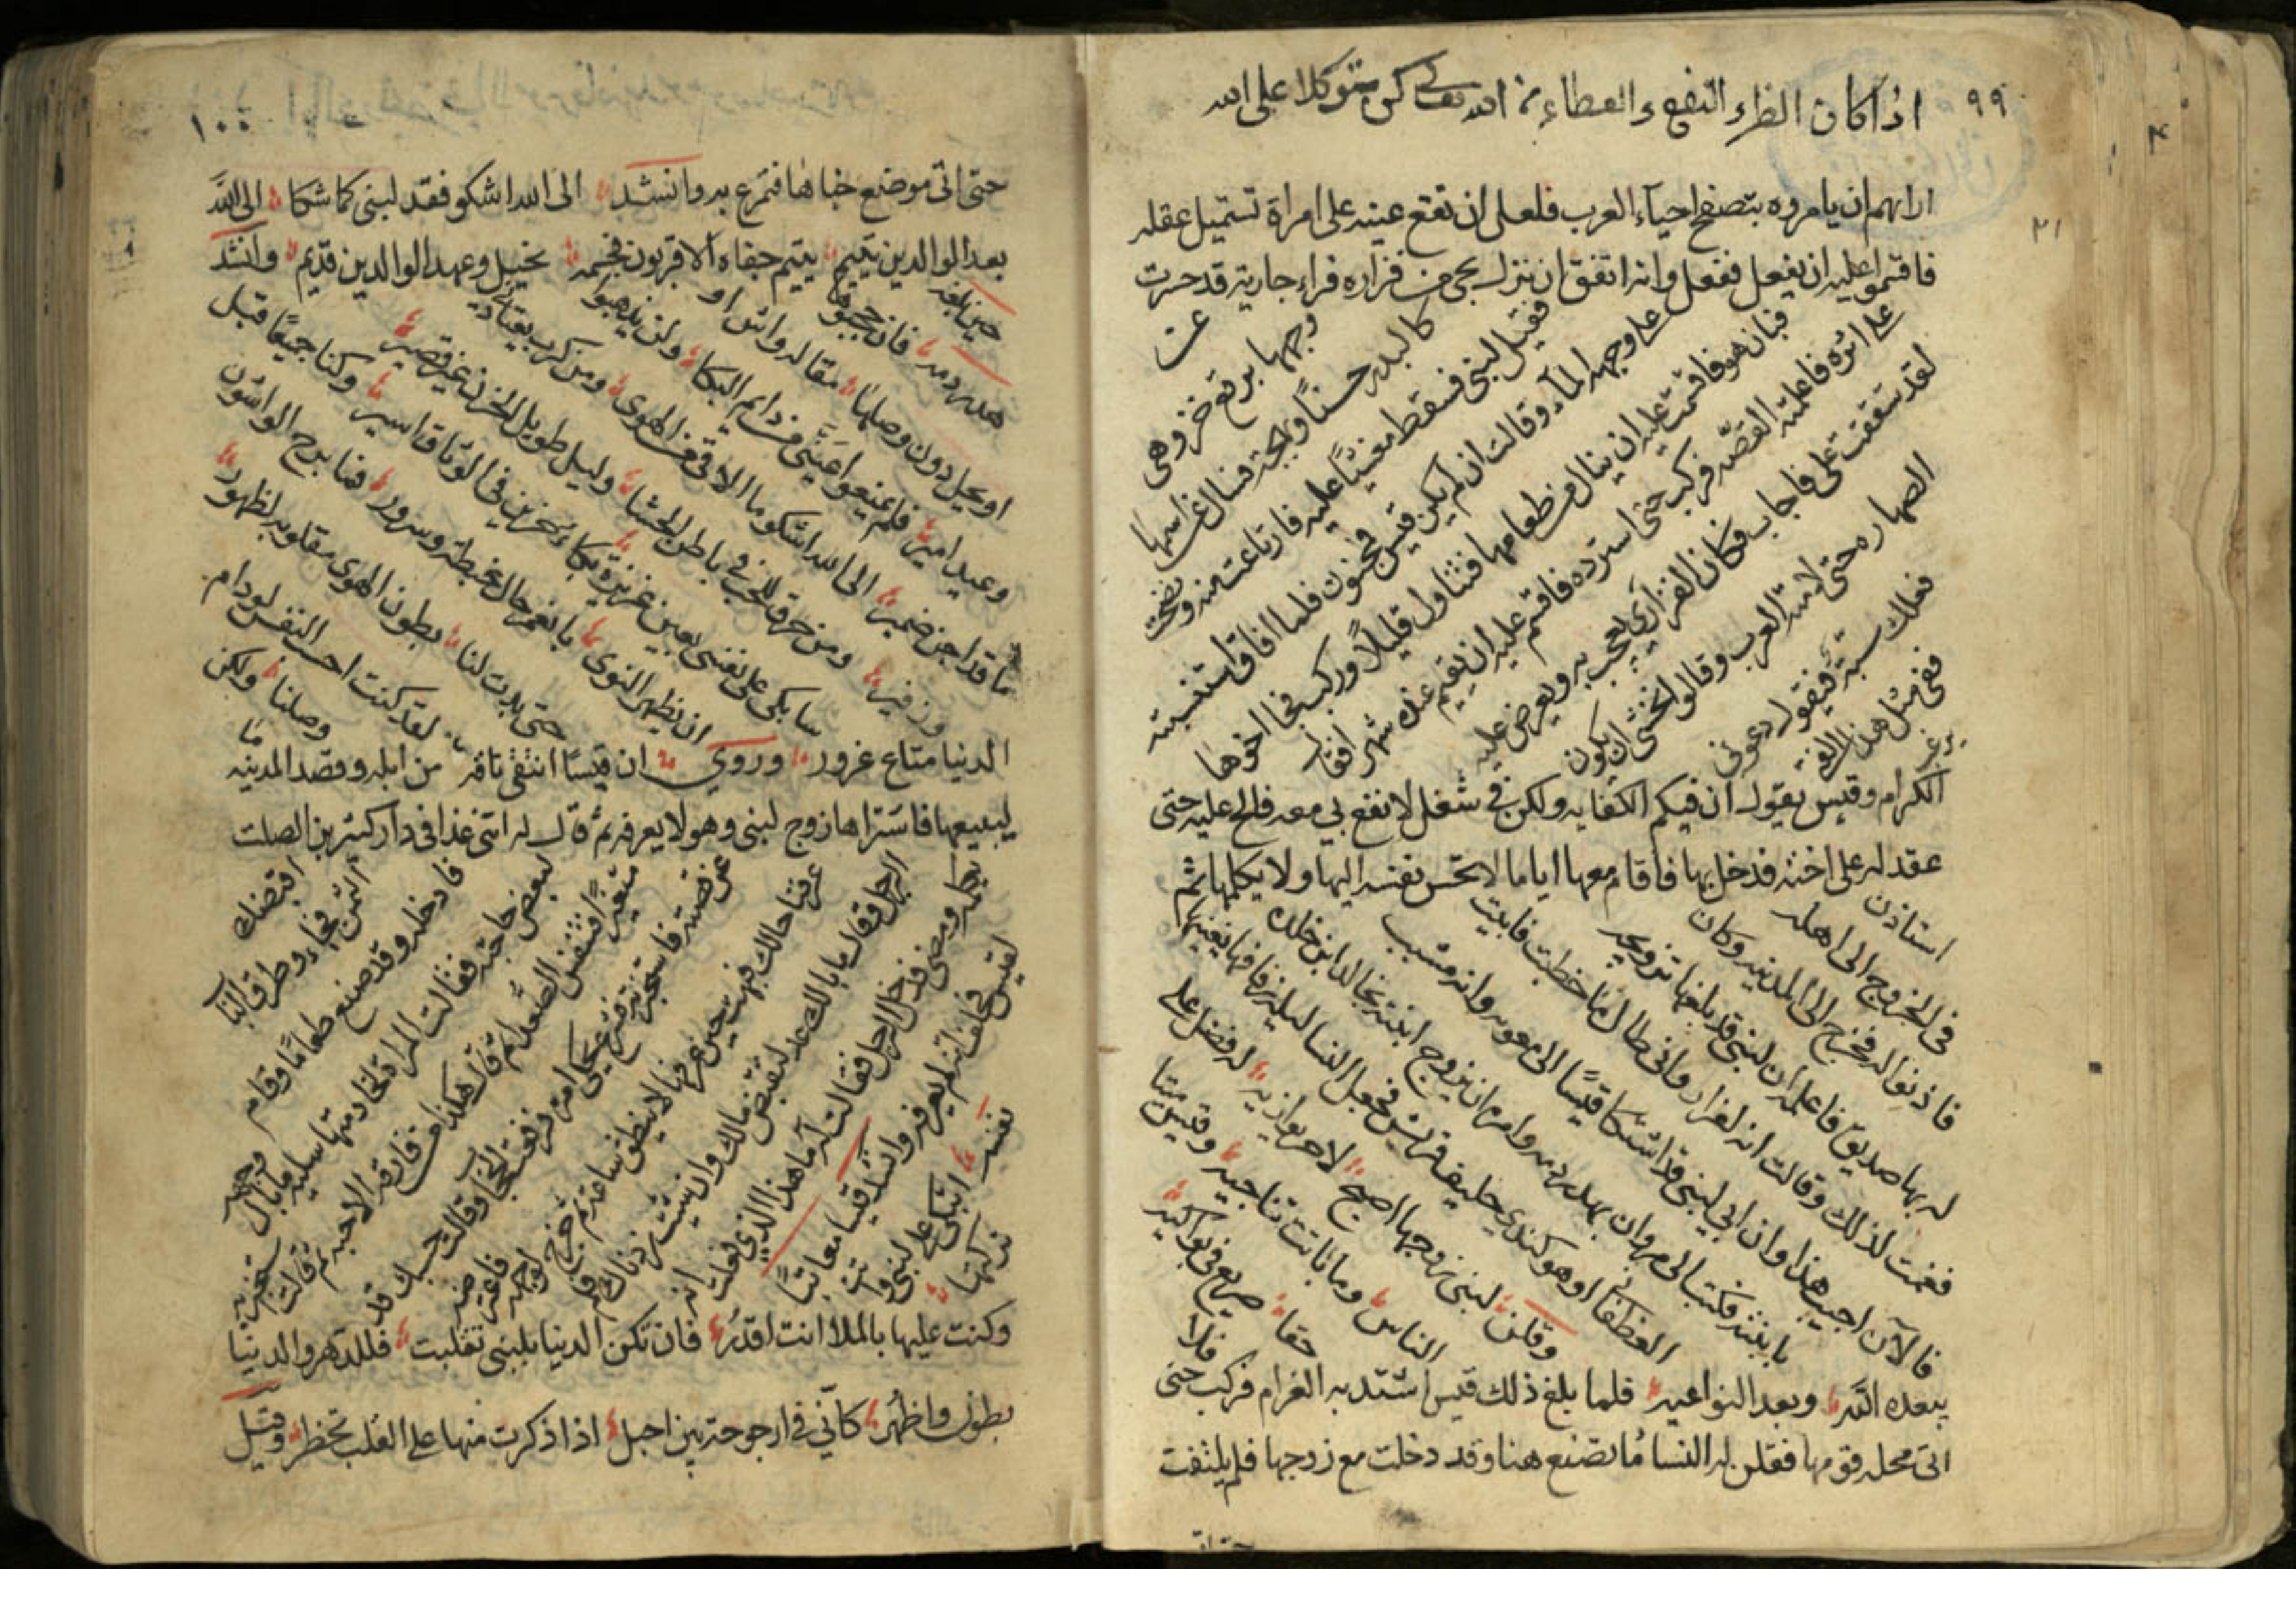 ٩٩
اذا كان الضر والنفع والعطاء من الله تعالى كن متوكلا على الله
اراهم ان يامروه بتصفح احياء العرب فلعل ان تقع عينه على امراة تستميل عقله
فاقسموا عليه ان يفعل ففعل وانه اتفق ان نزل بحي من فزاره فراء جارية قد حسرت
عن
وجهها برقع خز وهي
كالبدر حسنا وبهجة فسال عن اسمها
فقيل لبنى فسقط مغشيا عليه فارتاعت منه ونضحت
على وجهه الماء وقالت ان لم يكن قيس فمجنون فلما افاق استنسبته
فبان هو فاقسمت عليه ان ينال من طعامها فتناول قليلا وركب فجا اخوها
على اثره فاعلمته القصة فركب حتى استرده فاقسم عليه ان يقيم عنده شهرا فقال
لقد شققت علي فاجاب فكان الفزاري يعجب به ويعرض عليه
الصهاره حتى لامته العرب وقالوا نخشى ان يكون
فعلك سبة فيقول دعوني
ففي مثل هذا الفتى
يرغب
الكرام وقيس يقول ان فيكم الكفايه ولكن في شغل لا نفع بي معه فالح عليه حتى
عقد له على اخته فدخل بها فاقام معها اياما لا تحس نفسه اليها ولا يكلمها ثم
استاذن
في الخروج الى اهله
فاذنوا له فخرج الى المدينه وكان
له بها صديق فاعلمه ان لبنى قد بلغها تزويجه
فغمت لذلك وقالت انه لغدار واني طال ما خطبت فابيت
فالآن اجيب هذا وان ابي لبنى قد اشتكا قيسا الى معويه وانه مشبب
بابنته فكتب الى مروان بهدر دمه وامره ان يزوج ابنته بخالد ابن خلده
الغطفاني او هو كندي حليف قريش فجعل النسا ليلة زفافها يغنيهم
وقلن لبنى زوجها اصبح لا حر يوازيه له فضل على
الناس وما باتت تناجيه وقيس ميتا
حقا صريع في بواكيه
فلا
يبعده الله وبعد النواعيه فلما بلغ ذلك قيس اشتد به الغرام فركب حتى
اتى محله قومها فقلن له النسا ما تصنع هنا وقد دخلت مع زوجها فلم يلتفت
١٠٠
حتى اتى موضع خباها فتمرغ به وانشد الى الله اشكو فقد لبنى كما شكا الى الله
بعد الوالدين يتيم يتيم جفاه الاقربون فجسمه نحيل وعهد الوالدين قديم وانشد
حين بلغه
هدر دمه فان يحجبوها
او يحل دون وصلها مقاله واش او
وعيد امير فلم يمنعوا عيني من دايم البكا ولن يذهبوا
ما قد اجن ضمير الى الله اشكو ما الاقي من الهوى ومن كرب يعتادني
وزفير ومن حرق للحب في باطن الحشا وليل طويل الحزن غير قصير
سابكي على نفسي بعين غزيرة بكاء حزين في الوثاق اسير وكنا جميعا قبل
ان يظهر النوى بانعم حال غبطة وسرور فما برح الواشون
حتى بدت لنا بطون الهوى مقلوبه لظهور
لقد كنت احسب النفس لو دام
وصلنا ولكن
ما
الدنيا متاع غرور وروي ان قيسا انتقى ناقه من ابله وقصد المدينه
ليبيعها فاشتراها زوج لبنى وهو لا يعرفه ثم قال له اتني غدا في دار كثير بن الصلت
اقبضك
الثمن فجاء وطرق الباب
فادخله وقد صنع طعاما وقام
لبعض حاجته فقالت المراة لخادمتها سليه ما بال وجهه
متغيرا فتنفس الصعدا ثم قال هكذا من فارق الاحبه ثم قالت استخبريه
عن قصته فاستخبرته فشرع يحكي امره فرفعت الحجاب وقالت حسبك قد
عرفنا حالك فبهت حين عرفها لا ينطق ساعة ثم خرج لوجهه فاعترضه
الرجل وقال ما بالك عد لتقبض مالك وان شئت زدناك فلم
يكلمه ومضى فدخل الرجل فقالت له ما هذا الذي فعلت انه
لقيس فحلف انه لم يعرفه وانشد قيسا معاتبا
نفسه اتبكي على لبنى وانت
تركتها
وكنت عليها بالملا انت اقدر فان تكن الدنيا بلبنى تقلبت فللدهر والدنيا
بطون واظهر كاني في ارجوحة بين احبل اذا ذكرت منها على القلب تخطر وقيل